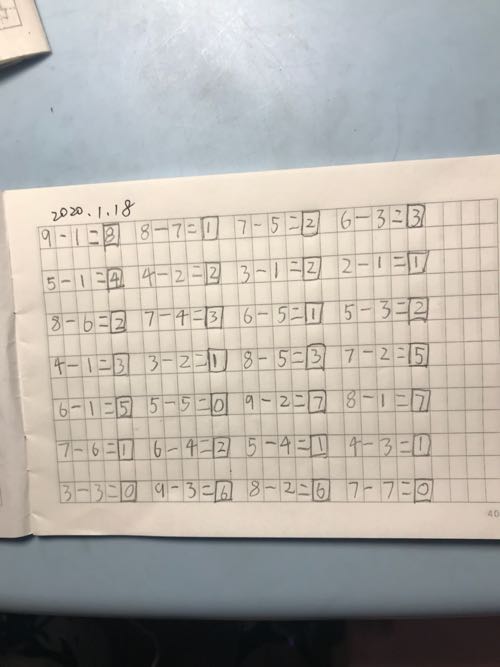 2020.1.18
9-1=8 8-7=1 7-5=2 6-3=3
5-1=4 4-2=2 3-1=2 2-1=1
8-6=2 7-4=3 6-5=1 5-3=2
4-1=3 3-2=1 8-5=3 7-2=5
6-1=5 5-5=0 9-2=7 8-1=7
7-6=1 6-4=2 5-4=1 4-3=1
3-3=0 9-3=6 8-2=6 7-7=0
40